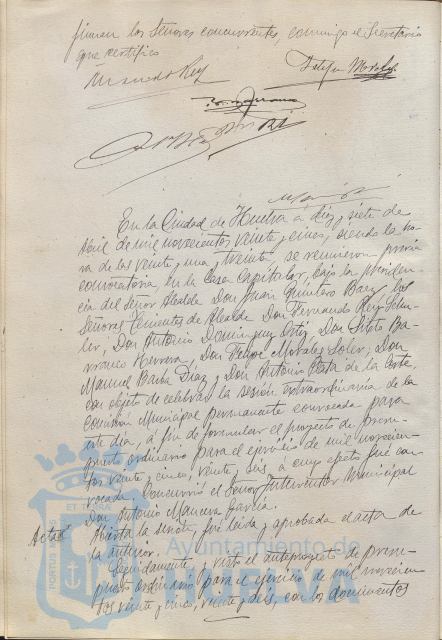 firman los Señores concurrentes, conmigo el Secretario
que certifico
En la Ciudad de Huelva a diez y siete de
Abril de mil novecientos veinte y cinco, siendo la ho-
ra de las veinte y una y treinta, se reunieron previa
convocatoria, en la Casa Capitular, bajo la presiden-
cia del Señor Alcalde Don Juan Quintero Baez, los
Señores Tenientes de Alcalde Don Fernando Rey Soler, Don Antonio Dominguez Ortiz, Don Sixto Ba-
rranco Herrera, Don Felipe Morales Soler, Don
Manuel Barba Diaz y Don Antonio Plata de la Corte,
con objeto de celebrar la sesión extraordinaria de la
Comisión Municipal permanente convocada para
este dia, a fin de formular el proyecto de presu-
puesto ordinario para el ejercicio de mil novecien-
tos veinte y cinco, veinte y seis a cuyo efecto fué con-
vocada. Concurrió el Señor Interventor Municipal
Don Antonio Mancera Garcia.
Acta
Abierta la sesión, fué leida y aprobada el acta de
la anterior.
Seguidamente, y visto el anteproyecto de presu-
puesto ordinario para el ejercicio de mil novecien-
tos veinte y cinco, veinte y seis, con los documentos
Ayuntamiento de
HUELVA